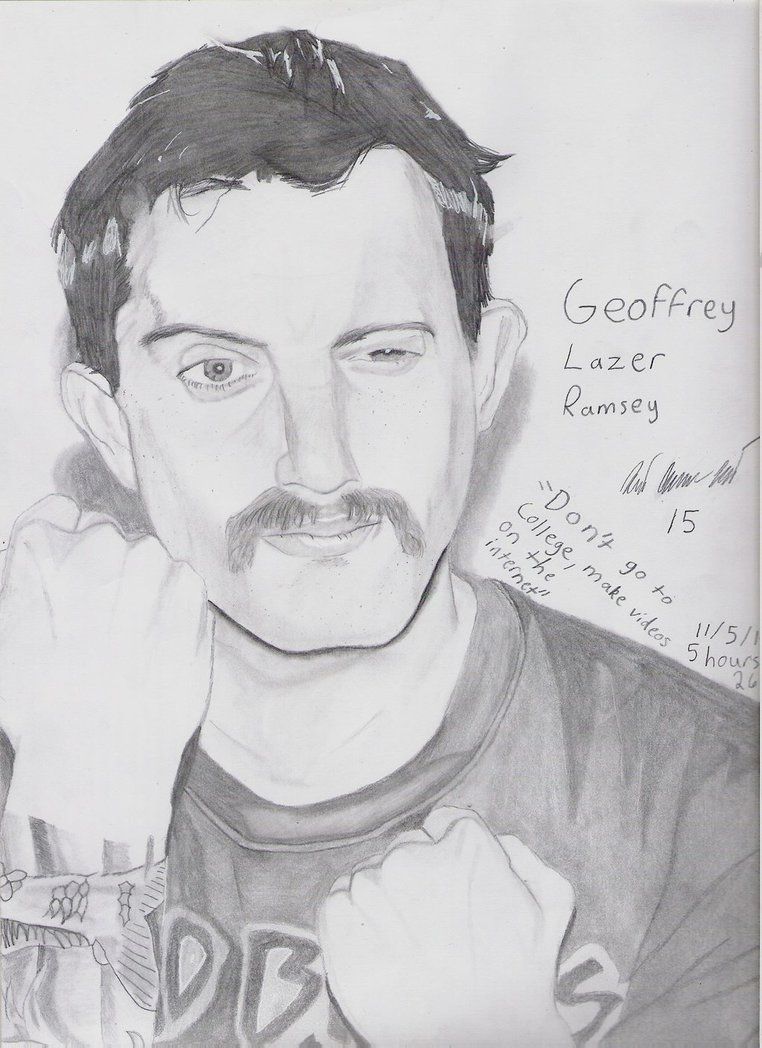 Geoffrey
Lazer
Ramsey
15
"Don't go to
College, make videos
on the
internet"
11/5/1
5 hours
26
DB S